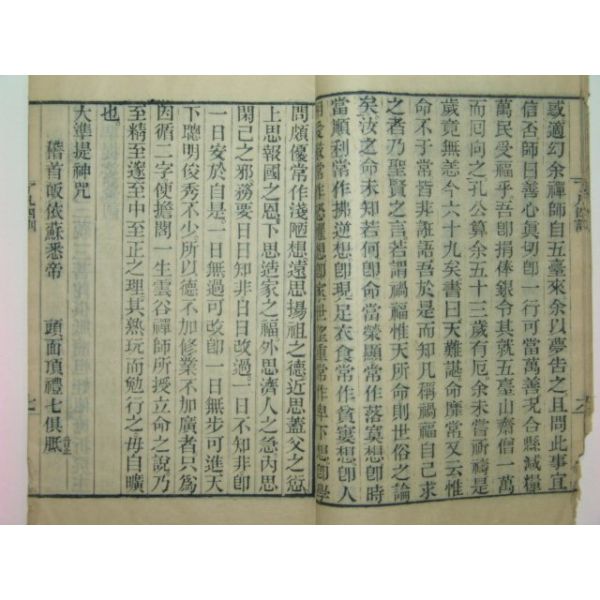 或適幻余禪師自五臺來余以夢告之且問此事宜
信否師曰善心眞切卽一行可當萬善况合縣減糧
萬民受福乎吾卽捐俸銀令其就五臺山齋僧一萬
而囘向之孔公算余五十三歲有厄余未嘗祈禱是
歲竟無恙今六十九矣書曰天難諶命靡常又云惟
命不于常皆非誑語吾於是而知凡稱禍福自己求
之者乃聖賢之言若謂禍福惟天所命則世俗之論
矣汝之命未知若何卽命當榮顯常作落寞想卽時
當順利常作拂逆想卽現足衣食常作貧窶想卽人
相愛敬常作恐懼想卽家世望重常作卑下想卽學
問頗優常作淺陋想遠思揚祖之德近思蓋父之愆
上思報國之恩下思造家之福外思濟人之急內思
閑己之邪務要日日知非日日改過一日不知非卽
一日安於自是一日無過可改卽一日無步可進天
下聰明俊秀不少所以德不加修業不加廣者只爲
因循二字便擔閣一生雲谷禪師所授立命之說乃
至精至邃至中至正之理其熟玩而勉行之毋自曠
也
大準提神咒
稽首皈依蘇悉帝 頭面頂禮七俱胝
了凡四訓